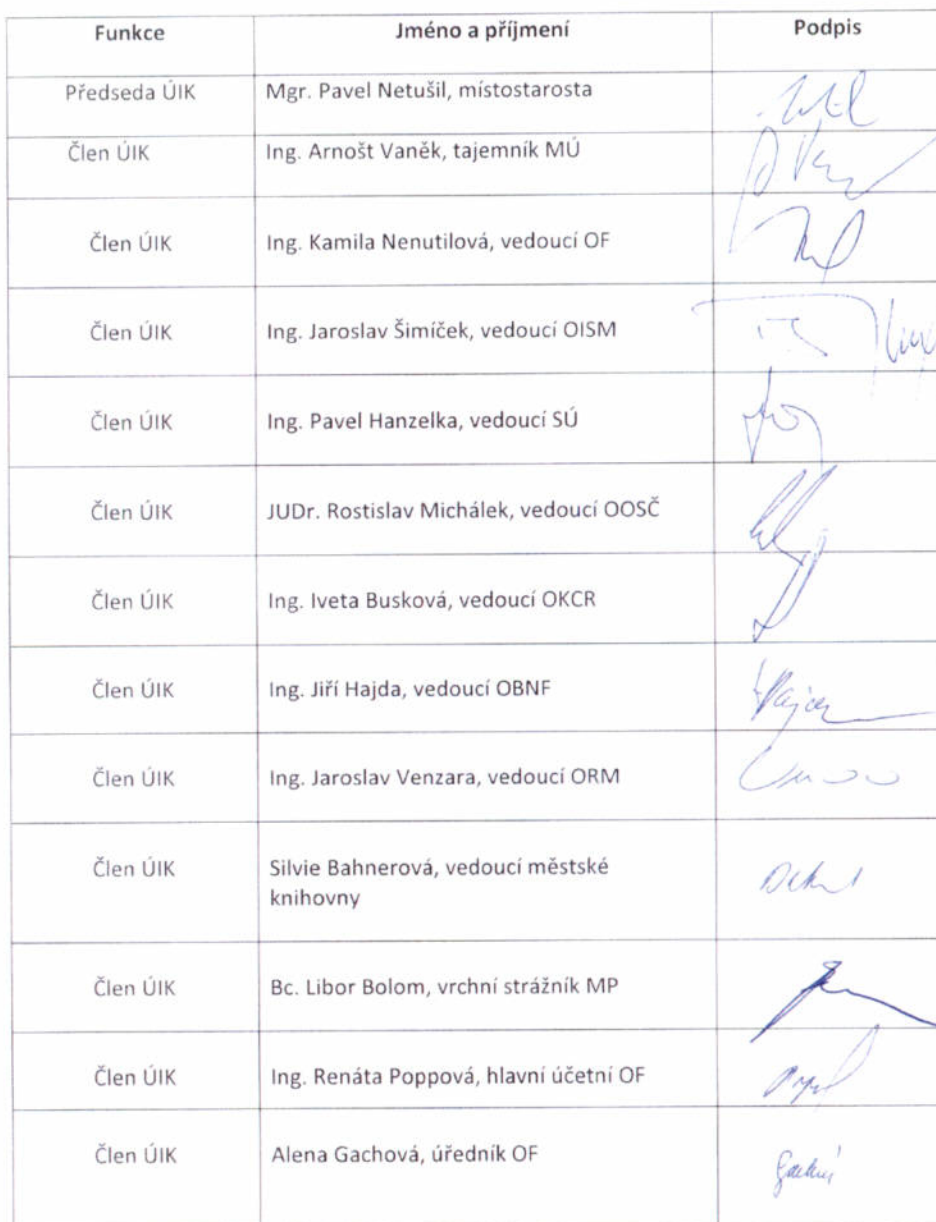 Funkce Jméno a příjmení Podpis
Předseda ÚIK Mgr. Pavel Netušil, místostarosta
Člen ÚIK Ing. Arnošt Vaněk, tajemník MÚ
Člen ÚIK Ing. Kamila Nenutilová, vedoucí OF
Člen ÚIK Ing. Jaroslav Šimíček, vedoucí OISM
Člen ÚIK Ing. Pavel Hanzelka, vedoucí SÚ
Člen ÚIK JUDr. Rostislav Michálek, vedoucí OOSČ
Člen ÚIK Ing. Iveta Busková, vedoucí OKCR
Člen ÚIK Ing. Jiří Hajda, vedoucí OBNF
Člen ÚIK Ing. Jaroslav Venzara, vedoucí ORM
Člen ÚIK Silvie Bahnerová, vedoucí městské
knihovny
Člen ÚIK Bc. Libor Bolom, vrchní strážník MP
Člen ÚIK Ing. Renáta Poppová, hlavní účetní OF
Člen ÚIK Alena Gachová, úředník OF